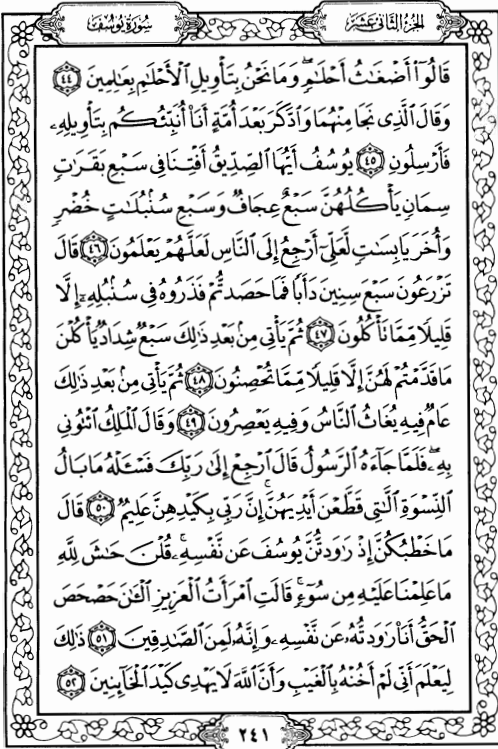 الجزء الثاني عشر
سورة يوسف
قَالُوٓا۟ أَضْغَـٰثُ أَحْلَـٰمٍۖ وَمَا نَحْنُ بِتَأْوِيلِ ٱلْأَحْلَـٰمِ بِعَـٰلِمِينَ ٤٤
وَقَالَ ٱلَّذِى نَجَا مِنْهُمَا وَٱدَّكَرَ بَعْدَ أُمَّةٍ أَنَا۠ أُنَبِّئُكُم بِتَأْوِيلِهِۦ
فَأَرْسِلُونِ ٤٥ يُوسُفُ أَيُّهَا ٱلصِّدِّيقُ أَفْتِنَا فِى سَبْعِ بَقَرَٰتٍ
سِمَانٍ يَأْكُلُهُنَّ سَبْعٌ عِجَافٌ وَسَبْعِ سُنۢبُلَـٰتٍ خُضْرٍ
وَأُخَرَ يَابِسَـٰتٍ لَّعَلِّىٓ أَرْجِعُ إِلَى ٱلنَّاسِ لَعَلَّهُمْ يَعْلَمُونَ ٤٦ قَالَ
تَزْرَعُونَ سَبْعَ سِنِينَ دَأَبًا فَمَا حَصَدتُّمْ فَذَرُوهُ فِى سُنۢبُلِهِۦٓ إِلَّا
قَلِيلًا مِّمَّا تَأْكُلُونَ ٤٧ ثُمَّ يَأْتِى مِنۢ بَعْدِ ذَٰلِكَ سَبْعٌ شِدَادٌ يَأْكُلْنَ
مَا قَدَّمْتُمْ لَهُنَّ إِلَّا قَلِيلًا مِّمَّا تُحْصِنُونَ ٤٨ ثُمَّ يَأْتِى مِنۢ بَعْدِ ذَٰلِكَ
عَامٌ فِيهِ يُغَاثُ ٱلنَّاسُ وَفِيهِ يَعْصِرُونَ ٤٩ وَقَالَ ٱلْمَلِكُ ٱئْتُونِى
بِهِۦۖ فَلَمَّا جَآءَهُ ٱلرَّسُولُ قَالَ ٱرْجِعْ إِلَىٰ رَبِّكَ فَسْـَٔلْهُ مَا بَالُ
ٱلنِّسْوَةِ ٱلَّـٰتِى قَطَّعْنَ أَيْدِيَهُنَّۚ إِنَّ رَبِّى بِكَيْدِهِنَّ عَلِيمٌ ٥٠ قَالَ
مَا خَطْبُكُنَّ إِذْ رَٰوَدتُّنَّ يُوسُفَ عَن نَّفْسِهِۦۚ قُلْنَ حَـٰشَ لِلَّهِ
مَا عَلِمْنَا عَلَيْهِ مِن سُوٓءٍۚ قَالَتِ ٱمْرَأَتُ ٱلْعَزِيزِ ٱلْـَٔـٰنَ حَصْحَصَ
ٱلْحَقُّ أَنَا۠ رَٰوَدتُّهُۥ عَن نَّفْسِهِۦ وَإِنَّهُۥ لَمِنَ ٱلصَّـٰدِقِينَ ٥١ ذَٰلِكَ
لِيَعْلَمَ أَنِّى لَمْ أَخُنْهُ بِٱلْغَيْبِ وَأَنَّ ٱللَّهَ لَا يَهْدِى كَيْدَ ٱلْخَآئِنِينَ ٥٢
٢٤١